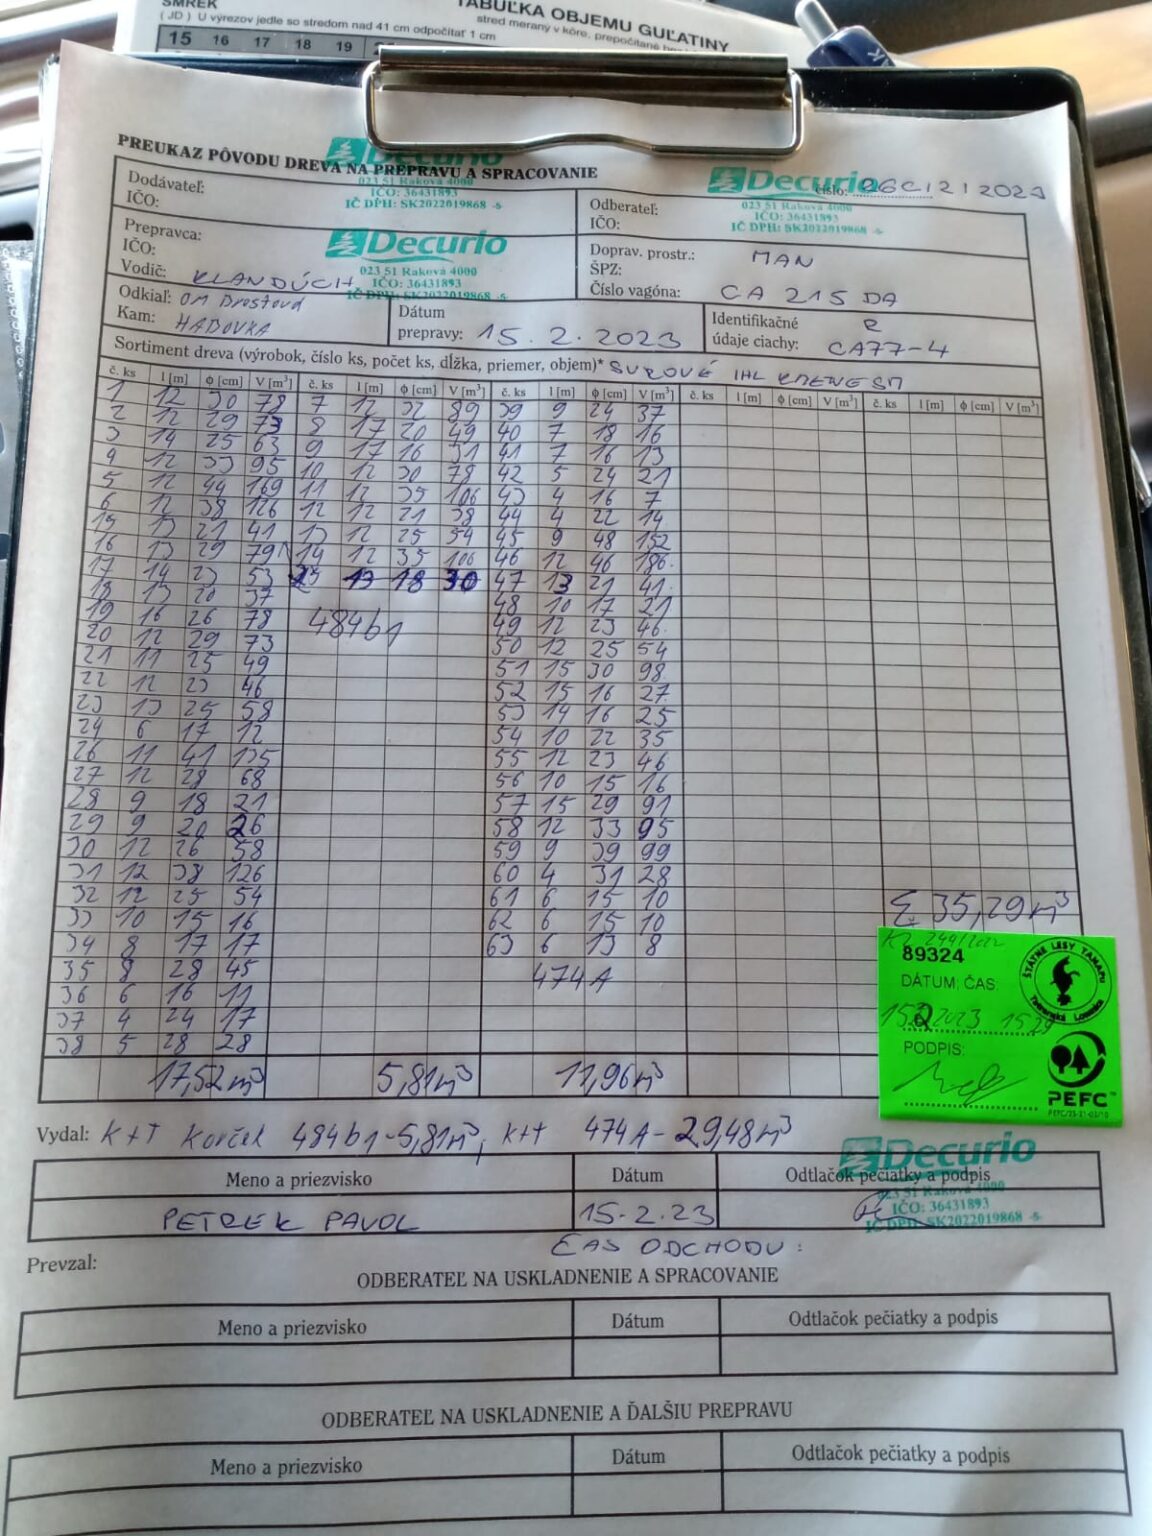 SMREK
( JD ) U výrezov jedle so stredom nad 41 cm odpočítať 1 cm
TABUĽKA OBJEMU GUĽATINY
stred meraný v kôre, prepočítané
15 16 17 18 19
PREUKAZ PÔVODU DREVA NA PREPRAVU A SPRACOVANIE
číslo: 2023
Dodávateľ:
IČO:
Decurio
023 51 Raková 4000
IČO: 36431893
IČ DPH: SK2022019868 -5-
Odberateľ:
IČO:
Decurio
023 51 Raková 4000
IČO: 36431893
IČ DPH: SK2022019868 -5-
Prepravca:
IČO:
Vodič: KLANDÚCH
Decurio
023 51 Raková 4000
IČO: 36431893
IČ DPH: SK2022019868 -5-
Doprav. prostr.: MAN
ŠPZ:
Číslo vagóna: CA 215 DA
Odkiaľ: OM Drostová
Kam: HADOVKA
Dátum
prepravy: 15. 2. 2023
Identifikačné R
údaje ciachy: CA77-4
Sortiment dreva (výrobok, číslo ks, počet ks, dĺžka, priemer, objem)* SUROVÉ IHL KMENE SM
č. ks l [m] ϕ [cm] V [m³] č. ks l [m] ϕ [cm] V [m³] č. ks l [m] ϕ [cm] V [m³] č. ks l [m] ϕ [cm] V [m³] č. ks l [m] ϕ [cm] V [m³]
1 12 30 78 7 12 32 89 39 9 24 37
2 12 29 73 8 17 20 49 40 7 18 16
3 14 25 63 9 17 16 31 41 7 16 13
4 12 33 95 10 12 30 78 42 5 24 21
5 12 44 169 11 12 35 106 43 4 16 7
6 12 38 126 12 12 21 38 44 4 22 14
15 13 21 41 13 12 25 54 45 9 48 152
16 13 29 79 14 12 35 106 46 12 46 186
17 14 23 53 25 13 18 30 47 13 21 41
18 13 20 37 48 10 17 21
19 16 26 78 484b1 49 12 23 46
20 12 29 73 50 12 25 54
21 11 25 49 51 15 30 98
22 12 23 46 52 15 16 27
23 13 25 58 53 14 16 25
24 6 17 12 54 10 22 35
26 11 41 135 55 12 23 46
27 12 28 68 56 10 15 16
28 9 18 21 57 15 29 91
29 9 20 26 58 12 33 95
30 12 26 58 59 9 39 99
31 12 38 126 60 4 31 28
32 12 25 54 61 6 15 10
33 10 15 16 62 6 15 10
34 8 17 17 63 6 13 8
35 8 28 45 474A
36 6 16 11
37 4 24 17
38 5 28 28
Σ 35,29m³
17,52m³ 5,81m³ 11,96m³
89324
DÁTUM; ČAS
15.2.2023 15
PODPIS:
ŠTÁTNE LESY TANAPU
Tatranská Lomnica
PEFC™
Vydal: K+T Korček 484b1-5,81m³, K+T 474A-29,48m³
Meno a priezvisko Dátum Odtlačok pečiatky a podpis
PETREK PAVOL 15.2.23
Decurio
023 51 Raková 4000
IČO: 36431893
IČ DPH: SK2022019868 -5-
ČAS ODCHODU:
Prevzal:
ODBERATEĽ NA USKLADNENIE A SPRACOVANIE
Meno a priezvisko Dátum Odtlačok pečiatky a podpis
ODBERATEĽ NA USKLADNENIE A ĎALŠIU PREPRAVU
Meno a priezvisko Dátum Odtlačok pečiatky a podpis